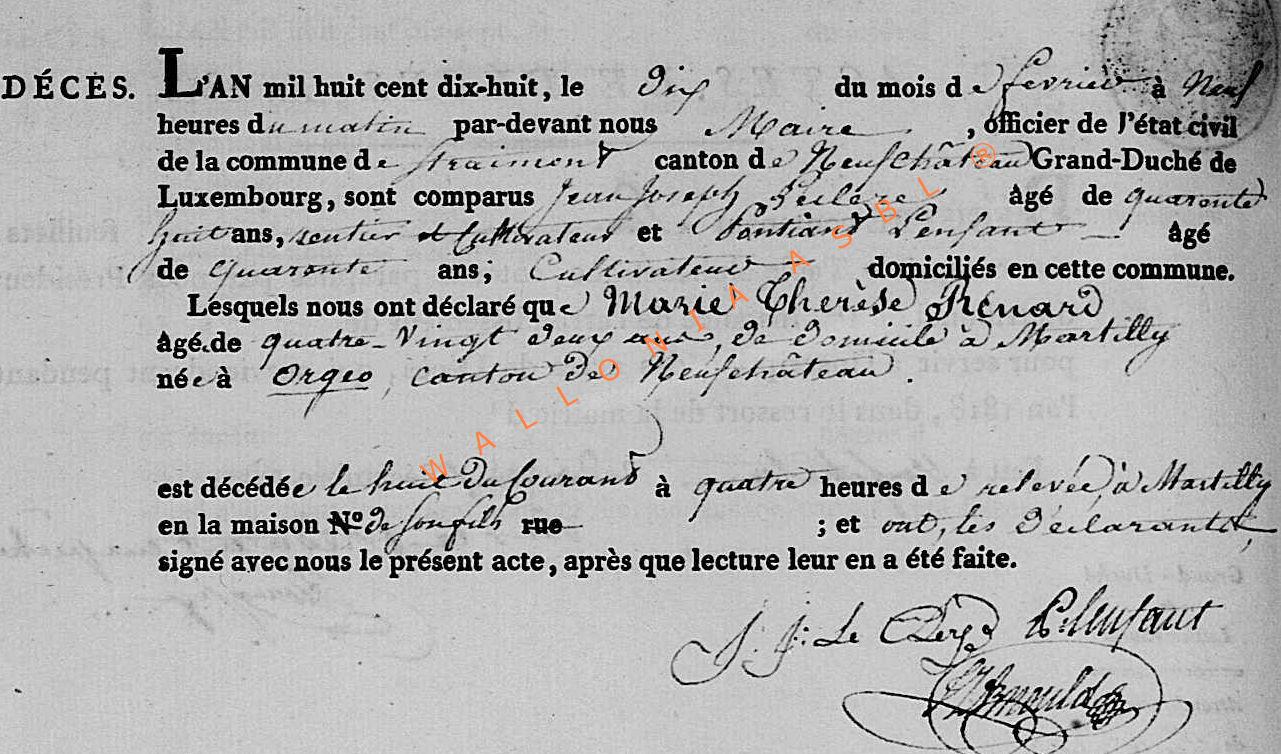 DÉCÈS. L'AN mil huit cent dix-huit, le dix du mois de fevrier à Neuf
heures du matin par-devant nous Maire, officier de l'état civil
de la commune de Straimont canton de Neufchâteau Grand-Duché de
Luxembourg, sont comparus Jean Joseph âgé de quarante
huit ans, rentier et Cultivateur et Pontian Lenfant âgé
de quarante ans; Cultivateur domiciliés en cette commune.
Lesquels nous ont déclaré que Marie Therèse Rénard
âgé de quatre-Vingt deux ans, de domicile à Martilly
née à Orgeo, canton de Neufchâteau.
est décédée le huit du Courant à quatre heures de relevée, à Martilly
en la maison No de son fils rue ; et ont, les déclarants,
signé avec nous le présent acte, après que lecture leur en a été faite.
J: J: Le Clerge P. Lenfant
WALLONIA ASBL ®